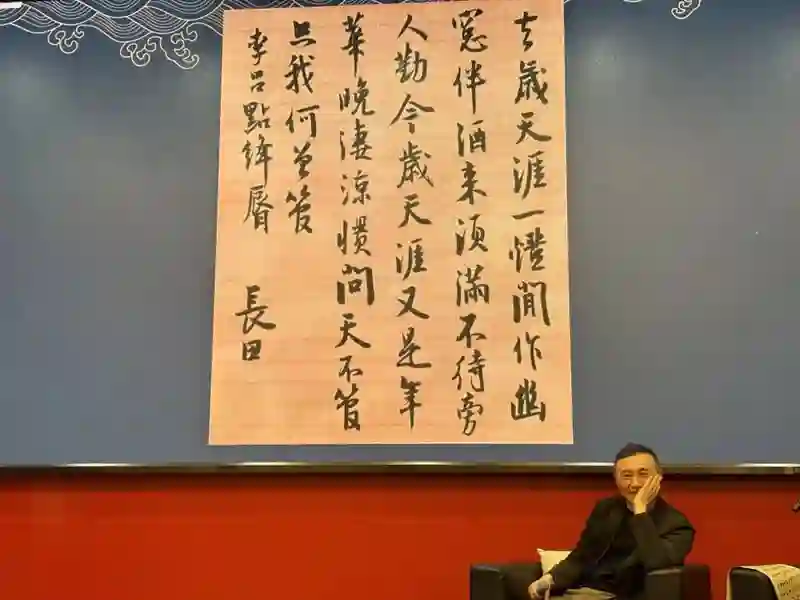 去歲天涯一燈閒作幽
窓伴酒来須滿不待旁
人勸今歲天涯又是年
華晚淒涼慣問天不管
只我何曾管
李呂點絳脣 長田